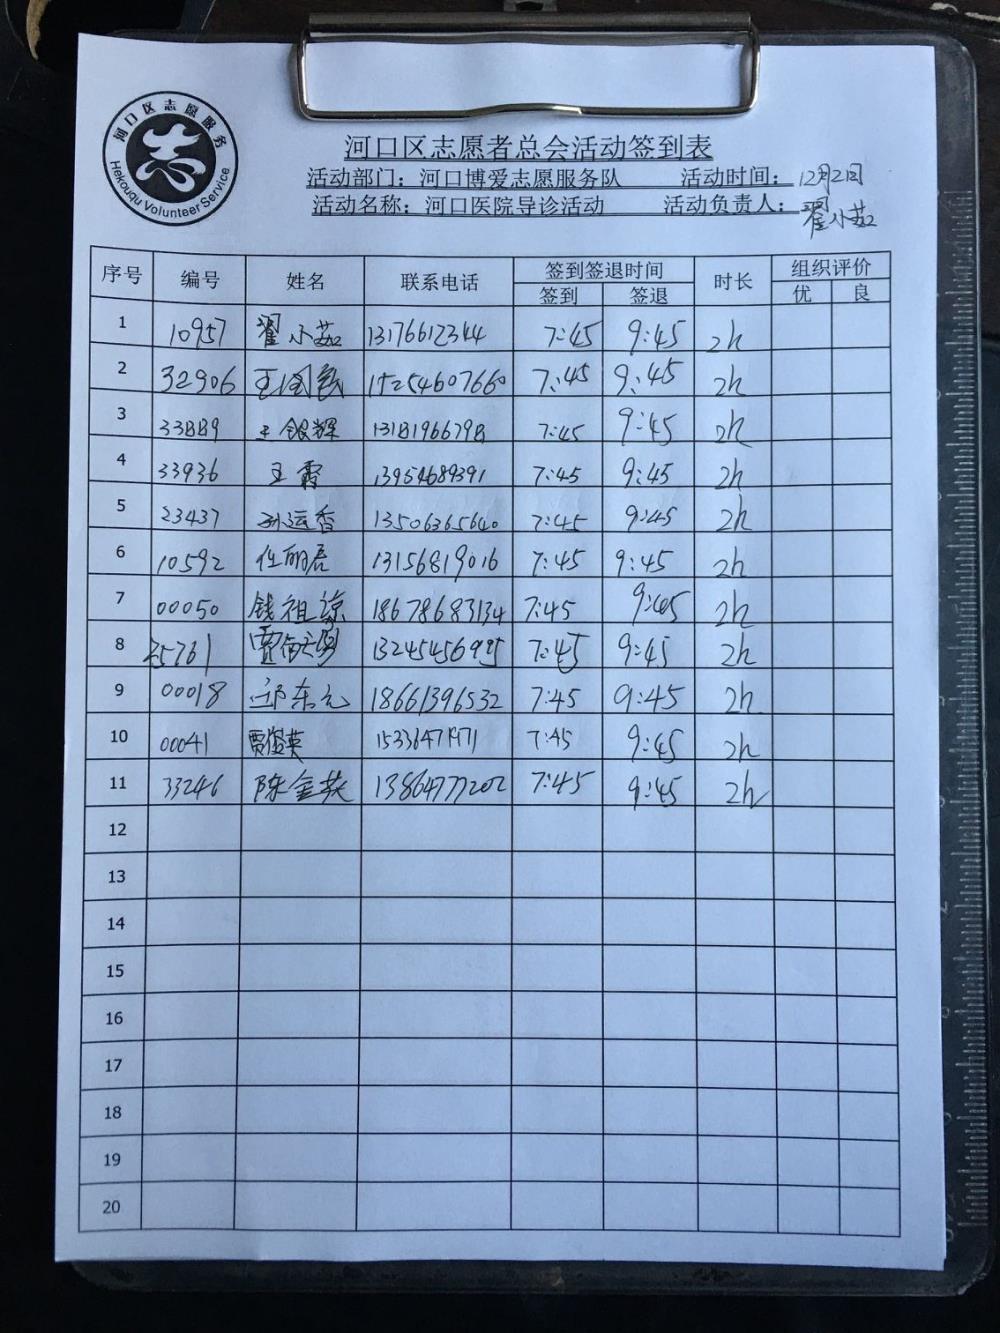 河口区志愿服务
Hekouqu Volunteer Service
河口区志愿者总会活动签到表
活动部门：河口博爱志愿服务队 活动时间：12月2日
活动名称：河口医院导诊活动 活动负责人：翟小茹
序号 编号 姓名 联系电话 签到签退时间 时长 组织评价
签到 签退 优 良
1 10957 翟小茹 13176612344 7:45 9:45 2h
2 32906 王国民 15254607660 7:45 9:45 2h
3 33889 王银辉 13181966798 7:45 9:45 2h
4 33936 王霄 13954689391 7:45 9:45 2h
5 23437 孙运香 13506365640 7:45 9:45 2h
6 10592 任丽君 13156819016 7:45 9:45 2h
7 00050 钱祖谅 18678683134 7:45 9:45 2h
8 25761 7:45 9:45 2h
9 00018 邱东元 18661396532 7:45 9:45 2h
10 00041 7:45 9:45 2h
11 33246 陈金英 13864777202 7:45 9:45 2h
12
13
14
15
16
17
18
19
20